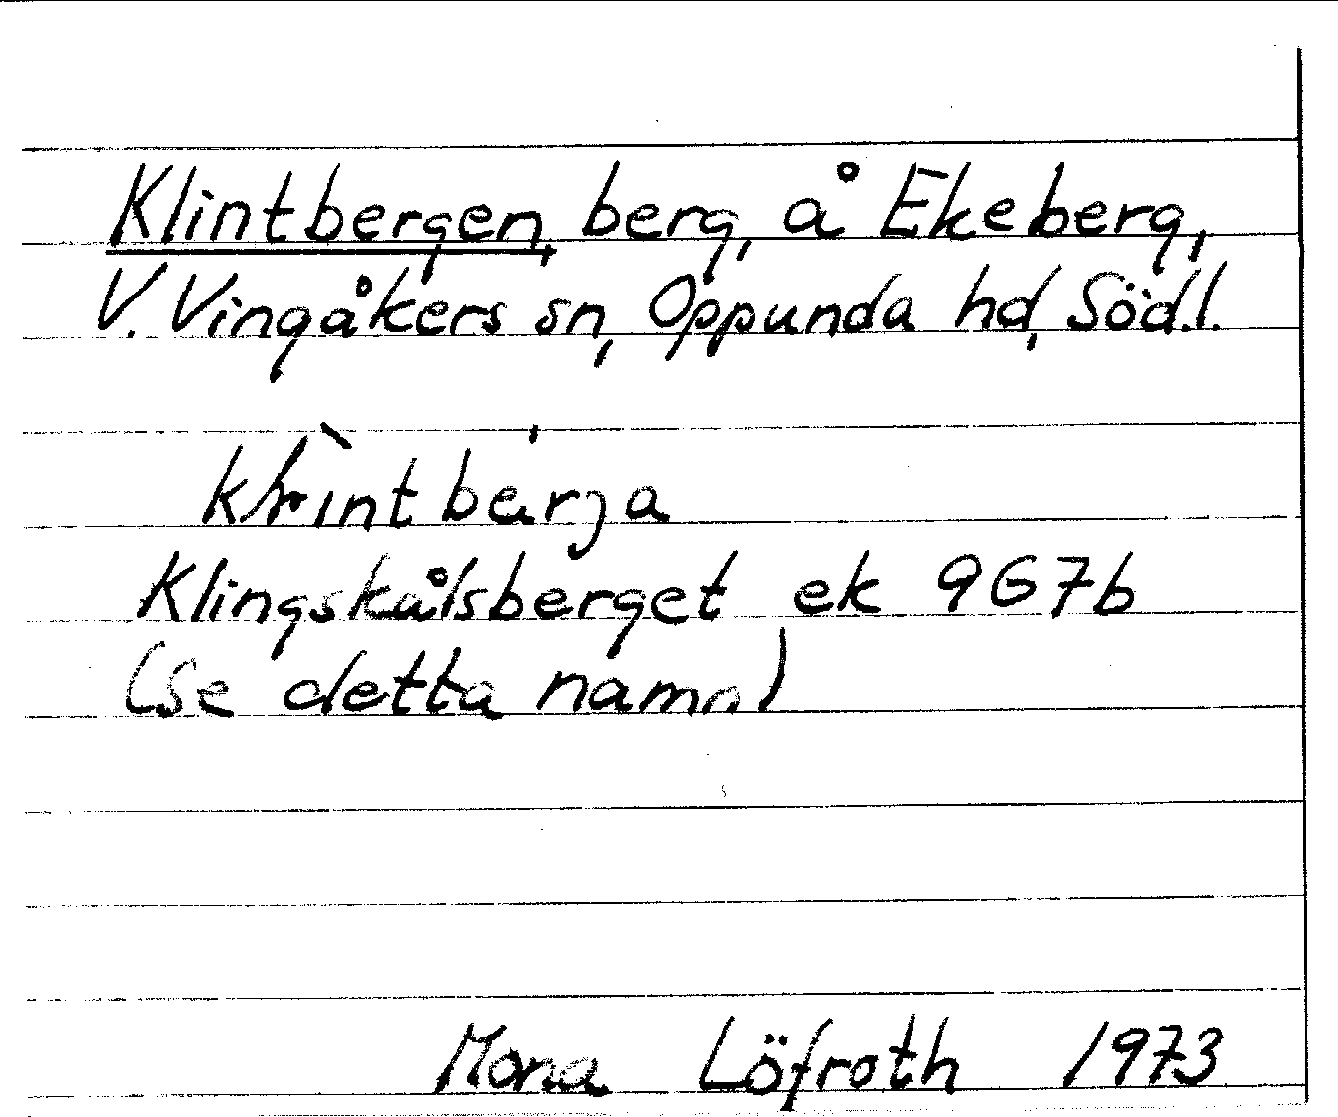 Klintbergen, berg, å Ekeberg,
V. Vingåkers sn, Oppunda hd, Söd.l.
Klingskålsberget ek 9G7b
(se detta namn)
Mona Löfroth 1973